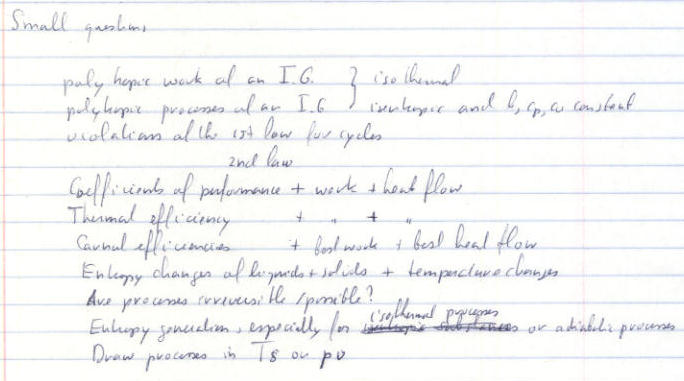 Small questions
polytropic work of an I.G. } isothermal
polytropic processes of an I.G } isentropic and k, cp, cv constant
violations of the 1st law for cycles
2nd law
Coefficients of performance + work + heat flow
Thermal efficiency + " + "
Carnot efficiencies + best work + best heat flow
Entropy changes of liquids + solids + temperature changes
Are processes irreversible / possible?
Entropy generation, especially for isothermal processes or adiabatic processes
Draw processes in Ts or pv